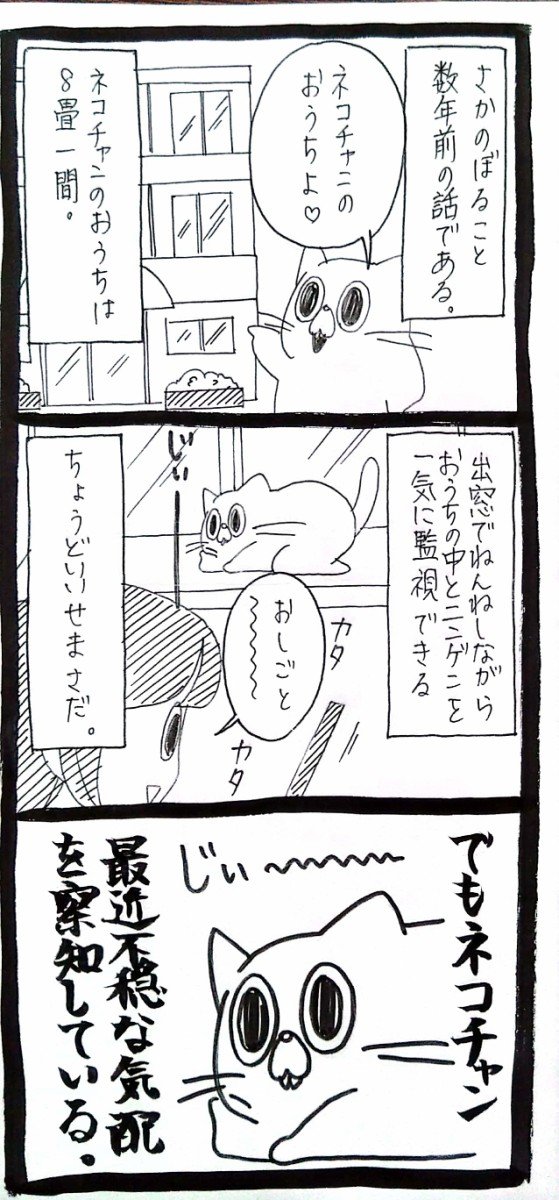 さかのぼること
数年前の話である。
ネコチャンの
おうちよ♡
ネコチャンのおうちは
8畳一間。
出窓でねんねしながら
おうちの中とニンゲンを
一気に監視できる
じぃー
カタ
おしごと〜〜〜
カタ
ちょうどいいせまさだ。
でもネコチャン
じぃ〜〜〜
最近不穏な気配
を察知している。